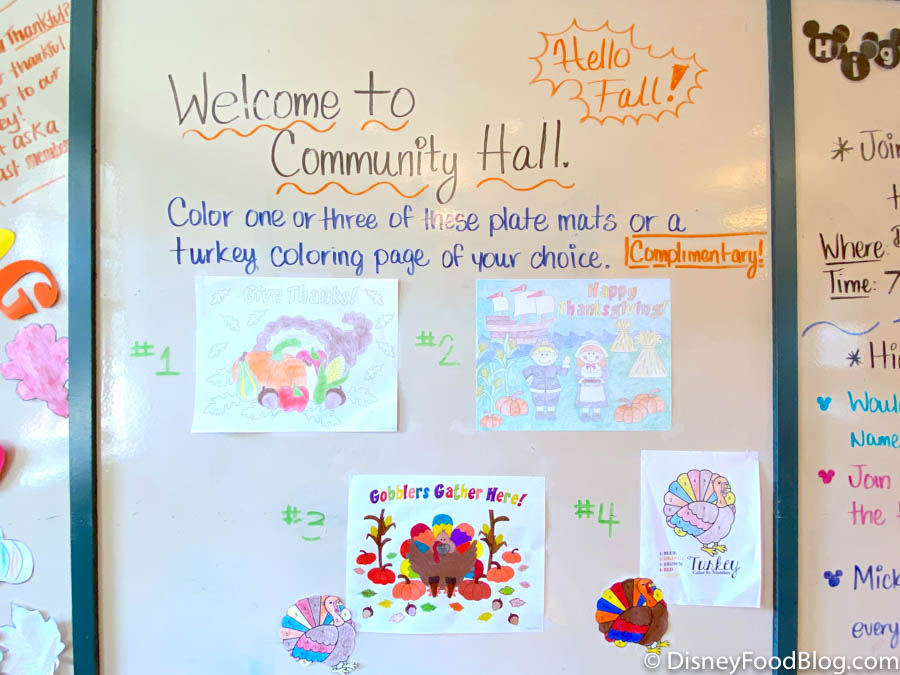 Thankful?
thankful
to our
ask a
member
G
Hello
Fall!
Welcome to
Community Hall.
Color one or three of these plate mats or a
turkey coloring page of your choice. Complimentary!
#1
Give Thanks!
#2
Happy
Thanksgiving!
#3
Gobblers Gather Here!
#4
1: BLUE
3: BROWN
4: RED
Turkey
Color by Number
Hig
* Join
Where:
Time: 7
* Hi
Woul
Name
Join
the
Mick
every
© DisneyFoodBlog.com